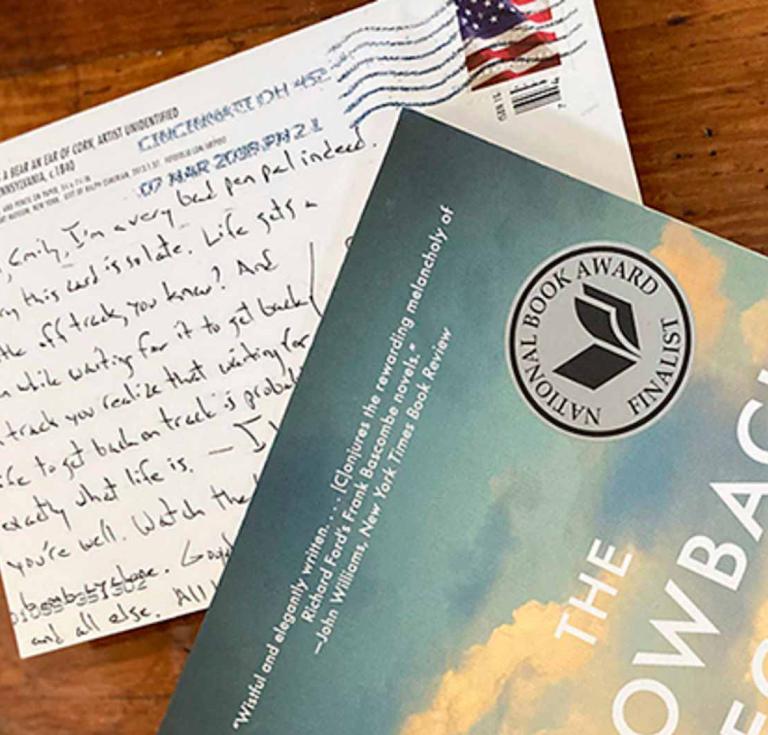 A BEAR AN EAR OF CORN, ARTIST UNIDENTIFIED
PENNSYLVANIA, c. 1840
CINCINNATI OH 452
07 MAR 2018 PM 2 L
Emily, I'm a very bad pen pal indeed.
this card is so late. Life gets a
off track, you know? And
while waiting for it to get back
track you realize that waiting for
to get back on track is
exactly what life is. — I
you're well. Watch the
and all else. All
NATIONAL BOOK AWARD
FINALIST
"Wistful and elegantly written. . . . [C]onjures the rewarding melancholy of
Richard Ford's Frank Bascombe novels."
—John Williams, New York Times Book Review
THE
OWBAC